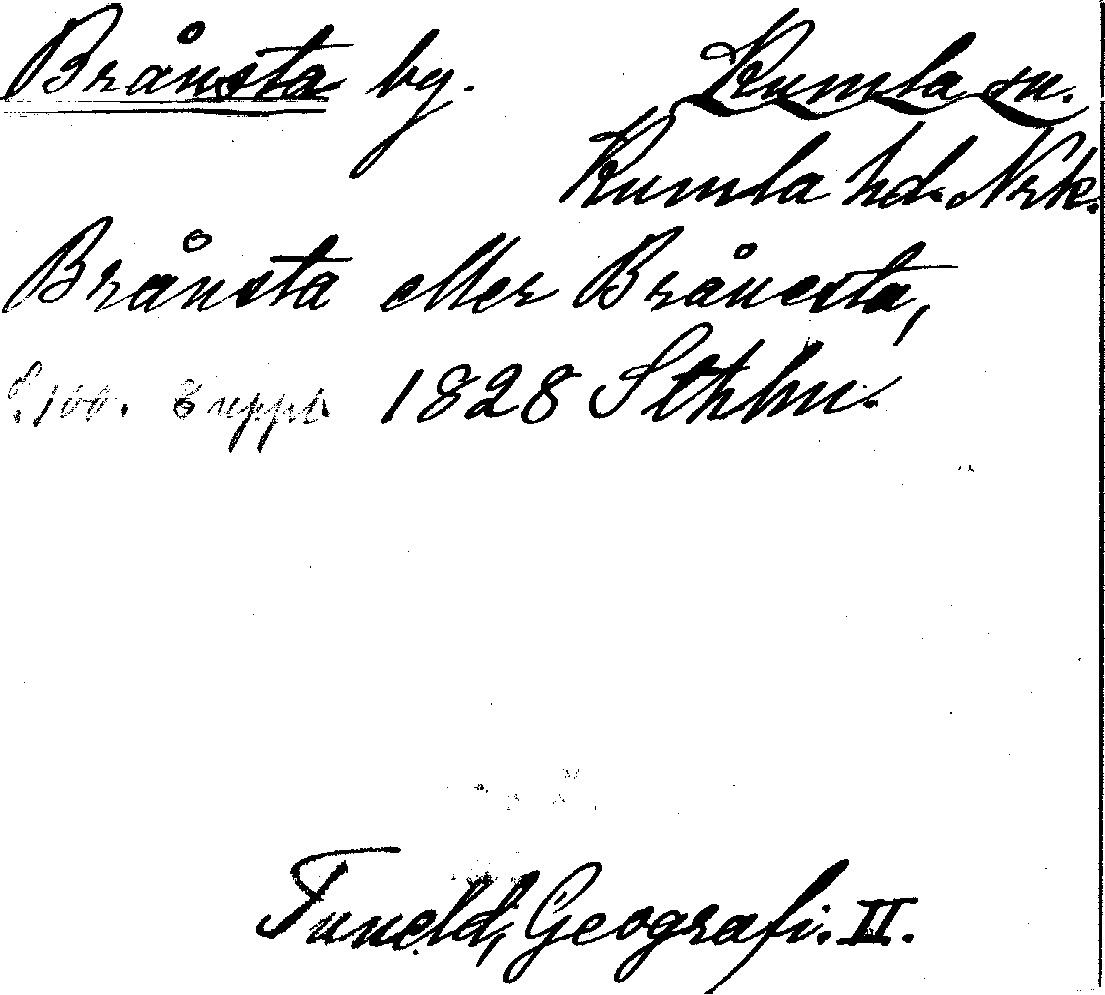 Brånsta by. Kumla sn.
Kumla hd. Nrk.
Brånsta eller Brånesta,
s. 100. 8 uppl. 1828 Sthlm.
Tuneld, Geografi. II.